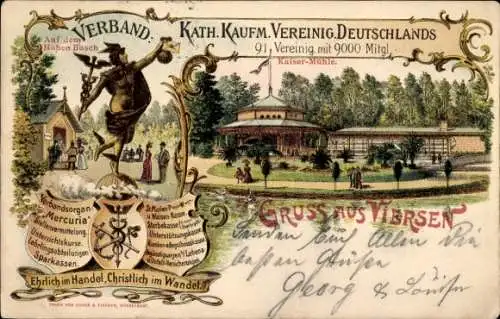 VERBAND: KATH. KAUFM. VEREINIG. DEUTSCHLANDS
91 Vereinig. mit 9000 Mitgl.
Auf dem
Hohen Busch
Kaiser-Mühle.
Verbandsorgan
"Mercuria"
Stellenvermittlung.
Unterrichtskurse.
Lehrlingsabtheilungen
Sparkassen.
Sterbekasse
GRUSS AUS VIERSEN
Ehrlich im Handel, Christlich im Wandel.
Senden Euch Allen die
besten Grüße
Georg & Louise